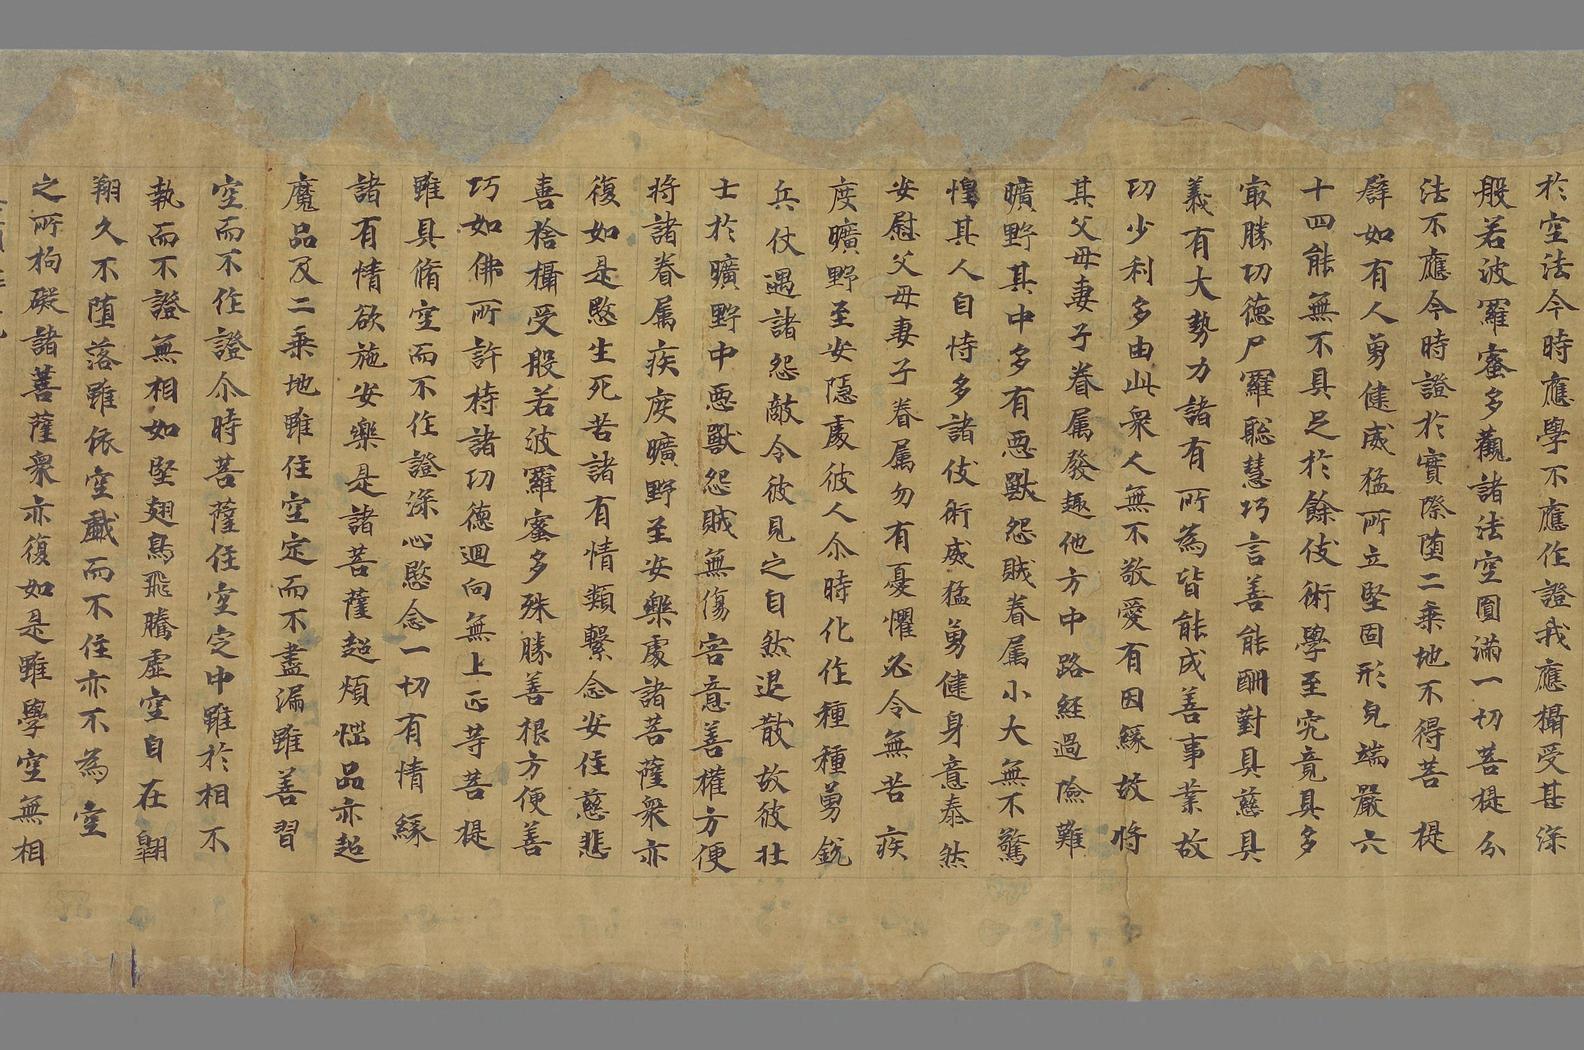 於空法今時應學不應作證我應攝受甚深
般若波羅蜜多觀諸法空圓滿一切菩提分
法不應今時證於實際墮二乘地不得菩提
譬如有人勇健威猛所立堅固形皃端嚴六
十四能無不具足於餘伎術學至究竟具多
最勝切德尸羅聡慧巧言善能酬對具慈具
義有大勢力諸有所為皆能成善事業故
切少利多由此衆人無不敬愛有因緣故將
其父母妻子眷属發趣他方中路經過險難
曠野其中多有惡獸怨賊眷属小大無不驚
惶其人自恃多諸伎術威猛勇健身意泰然
安慰父母妻子眷属勿有憂懼必令無苦疾
度曠野至安隱處彼人尒時化作種種勇銳
兵仗遇諸怨敵令彼見之自然退散故彼壮
士於曠野中惡獸怨賊無傷害意善權方便
将諸眷属疾度曠野至安樂處諸菩薩衆亦
復如是愍生死苦諸有情類繫念安住慈悲
喜捨攝受般若波羅蜜多殊勝善根方便善
巧如佛所許持諸切德迴向無上正等菩提
雖具脩空而不作證深心愍念一切有情緣
諸有情欲施安樂是諸菩薩超煩惱品亦超
魔品及二乘地雖住空定而不盡漏雖善習
空而不作證尒時菩薩住空定中雖於相不
執而不證無相如堅翅鳥飛騰虛空自在翱
翔久不墮落雖依空戲而不住亦不為空
之所拘礙諸菩薩衆亦復如是雖學空無相